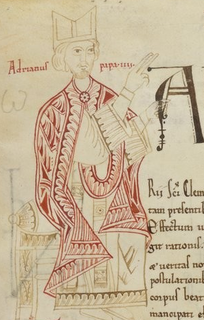 Adrianus papa·iiii·
A
Rii sci Clem
tam presenti
Effectum u
git rationis.
æ veritas no
postulationib
corpus beat
mancipari et